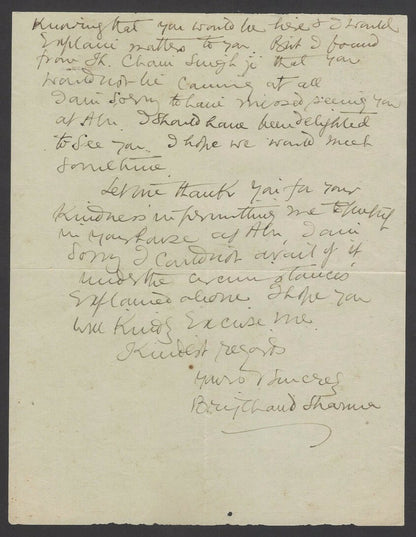 Knowing that you would be here & I would
Explain matters to you. But I found
from Th. Chain Singh ji that you
would not be coming at all
I am sorry to have missed seeing you
at Abu. I should have been delighted
to see you. I hope we would meet
sometime.
Let me thank you for your
kindness in permitting me to put up
in your house at Abu. I am
sorry I could not avail of it
under the circumstances
Explained above. I hope you
will kindly Excuse me.
Kindest regards
Yours Sincerely
Brijchand Sharma